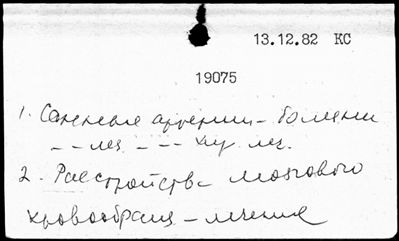 13.12.82 КС
19075
1. Сонные артерии – болезни
– – леч. – – хир. леч.
2. Расстройства мозгового
кровообращ – лечение